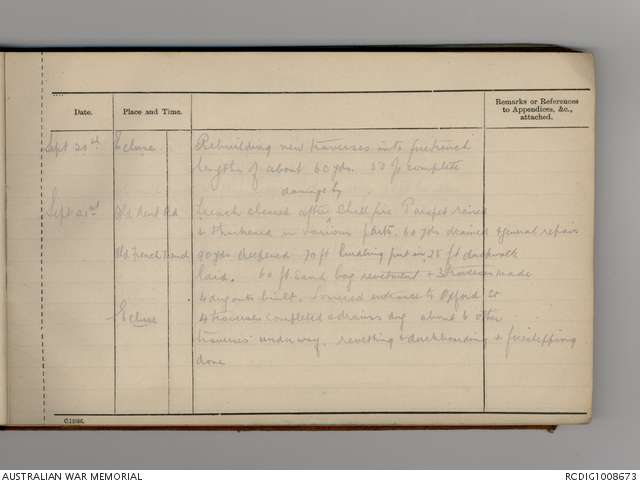 Date. Place and Time. Remarks or References to Appendices, &c., attached.
Sept 20th Ecluse Rebuilding new traverses into firetrench
lengths of about 60 yds. 50 ft complete
damage by
Sept 21st Old Kent Rd Trench cleared after Shell fire Parapet raised
& thickened in various parts. 60 yds drained & general repairs
Old French Trench 90 yds deepened 70 ft hurdling put in, 25 ft duckwalk
laid. 60 ft sand bag revetment + 3 traverses made
4 dugouts built. entrance to Oxford St
Ecluse 4 traverses completed & drains dug about 6 other
traverses under way. revetting & duckboarding & firestepping
done
AUSTRALIAN WAR MEMORIAL RCDIG1008673